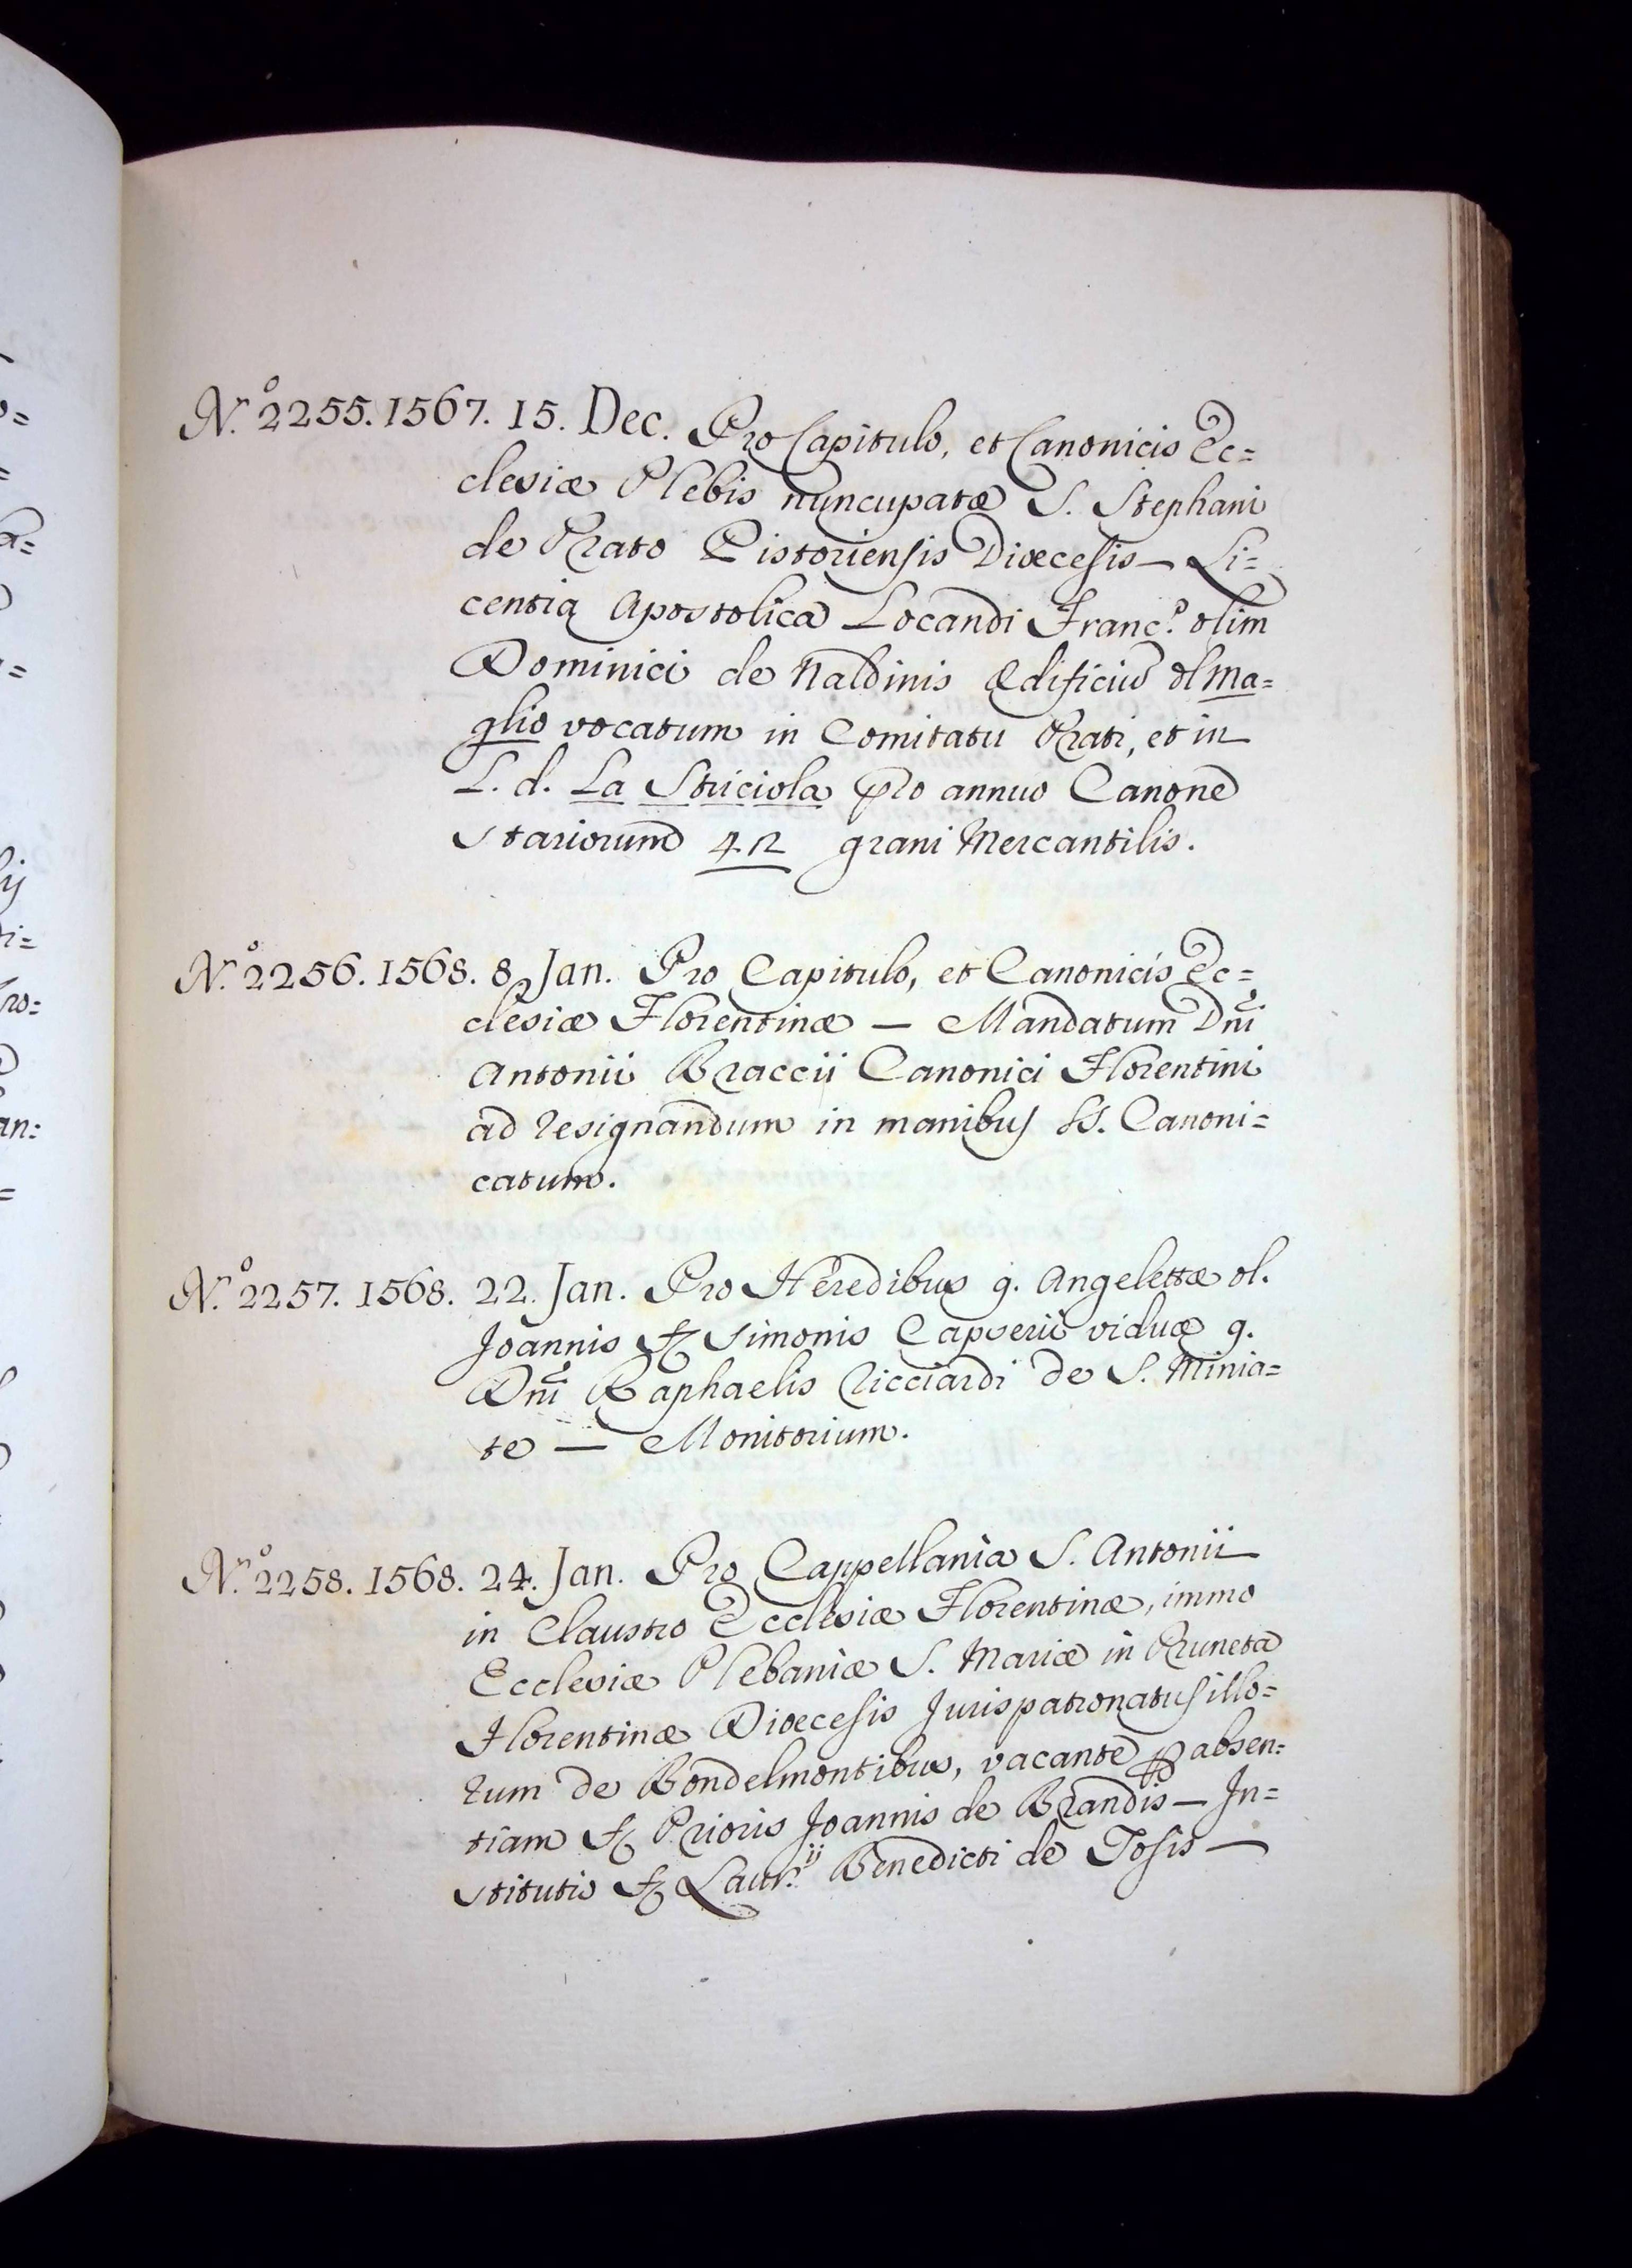 N.º 2255. 1567. 15. Dec. Pro Capitulo, et Canonicis Ec=
clesiæ Plebis nuncupatæ S. Stephani
de Prato Pistoriensis Diœcesis — Li=
centia Apostolica Locandi Franc.º olim
Dominici de Naldinis Ædificiũ ol Ma=
glio vocatum in Comitatu Prati, et in
L. d. La Striciola pro annuo Canone
Stariorum 42 grani Mercantilis.
N.º 2256. 1568. 8. Jan. Pro Capitulo, et Canonicis Ec=
clesiæ Florentinæ — Mandatum Dñi
Antonii Braccii Canonici Florentini
ad resignandum in manibus SS. Canoni=
catum.
N.º 2257. 1568. 22. Jan. Pro Heredibus q. Angelettæ ol.
Joannis Simonis viduæ q.
Dñi Raphaelis Ricciardi de S. Minia=
te — Monitorium.
N.º 2258. 1568. 24. Jan. Pro Cappellania S. Antonii
in Claustro Ecclesiæ Florentinæ, immo
Ecclesiæ Plebaniæ S. Mariæ in Pruneta
Florentinæ Diœcesis Jurispatronatus illo=
rum de Bondelmontibus, vacante absen=
tiam Prioris Joannis de Brandis — In=
stitutio Laur.ij Benedicti de Tosis —